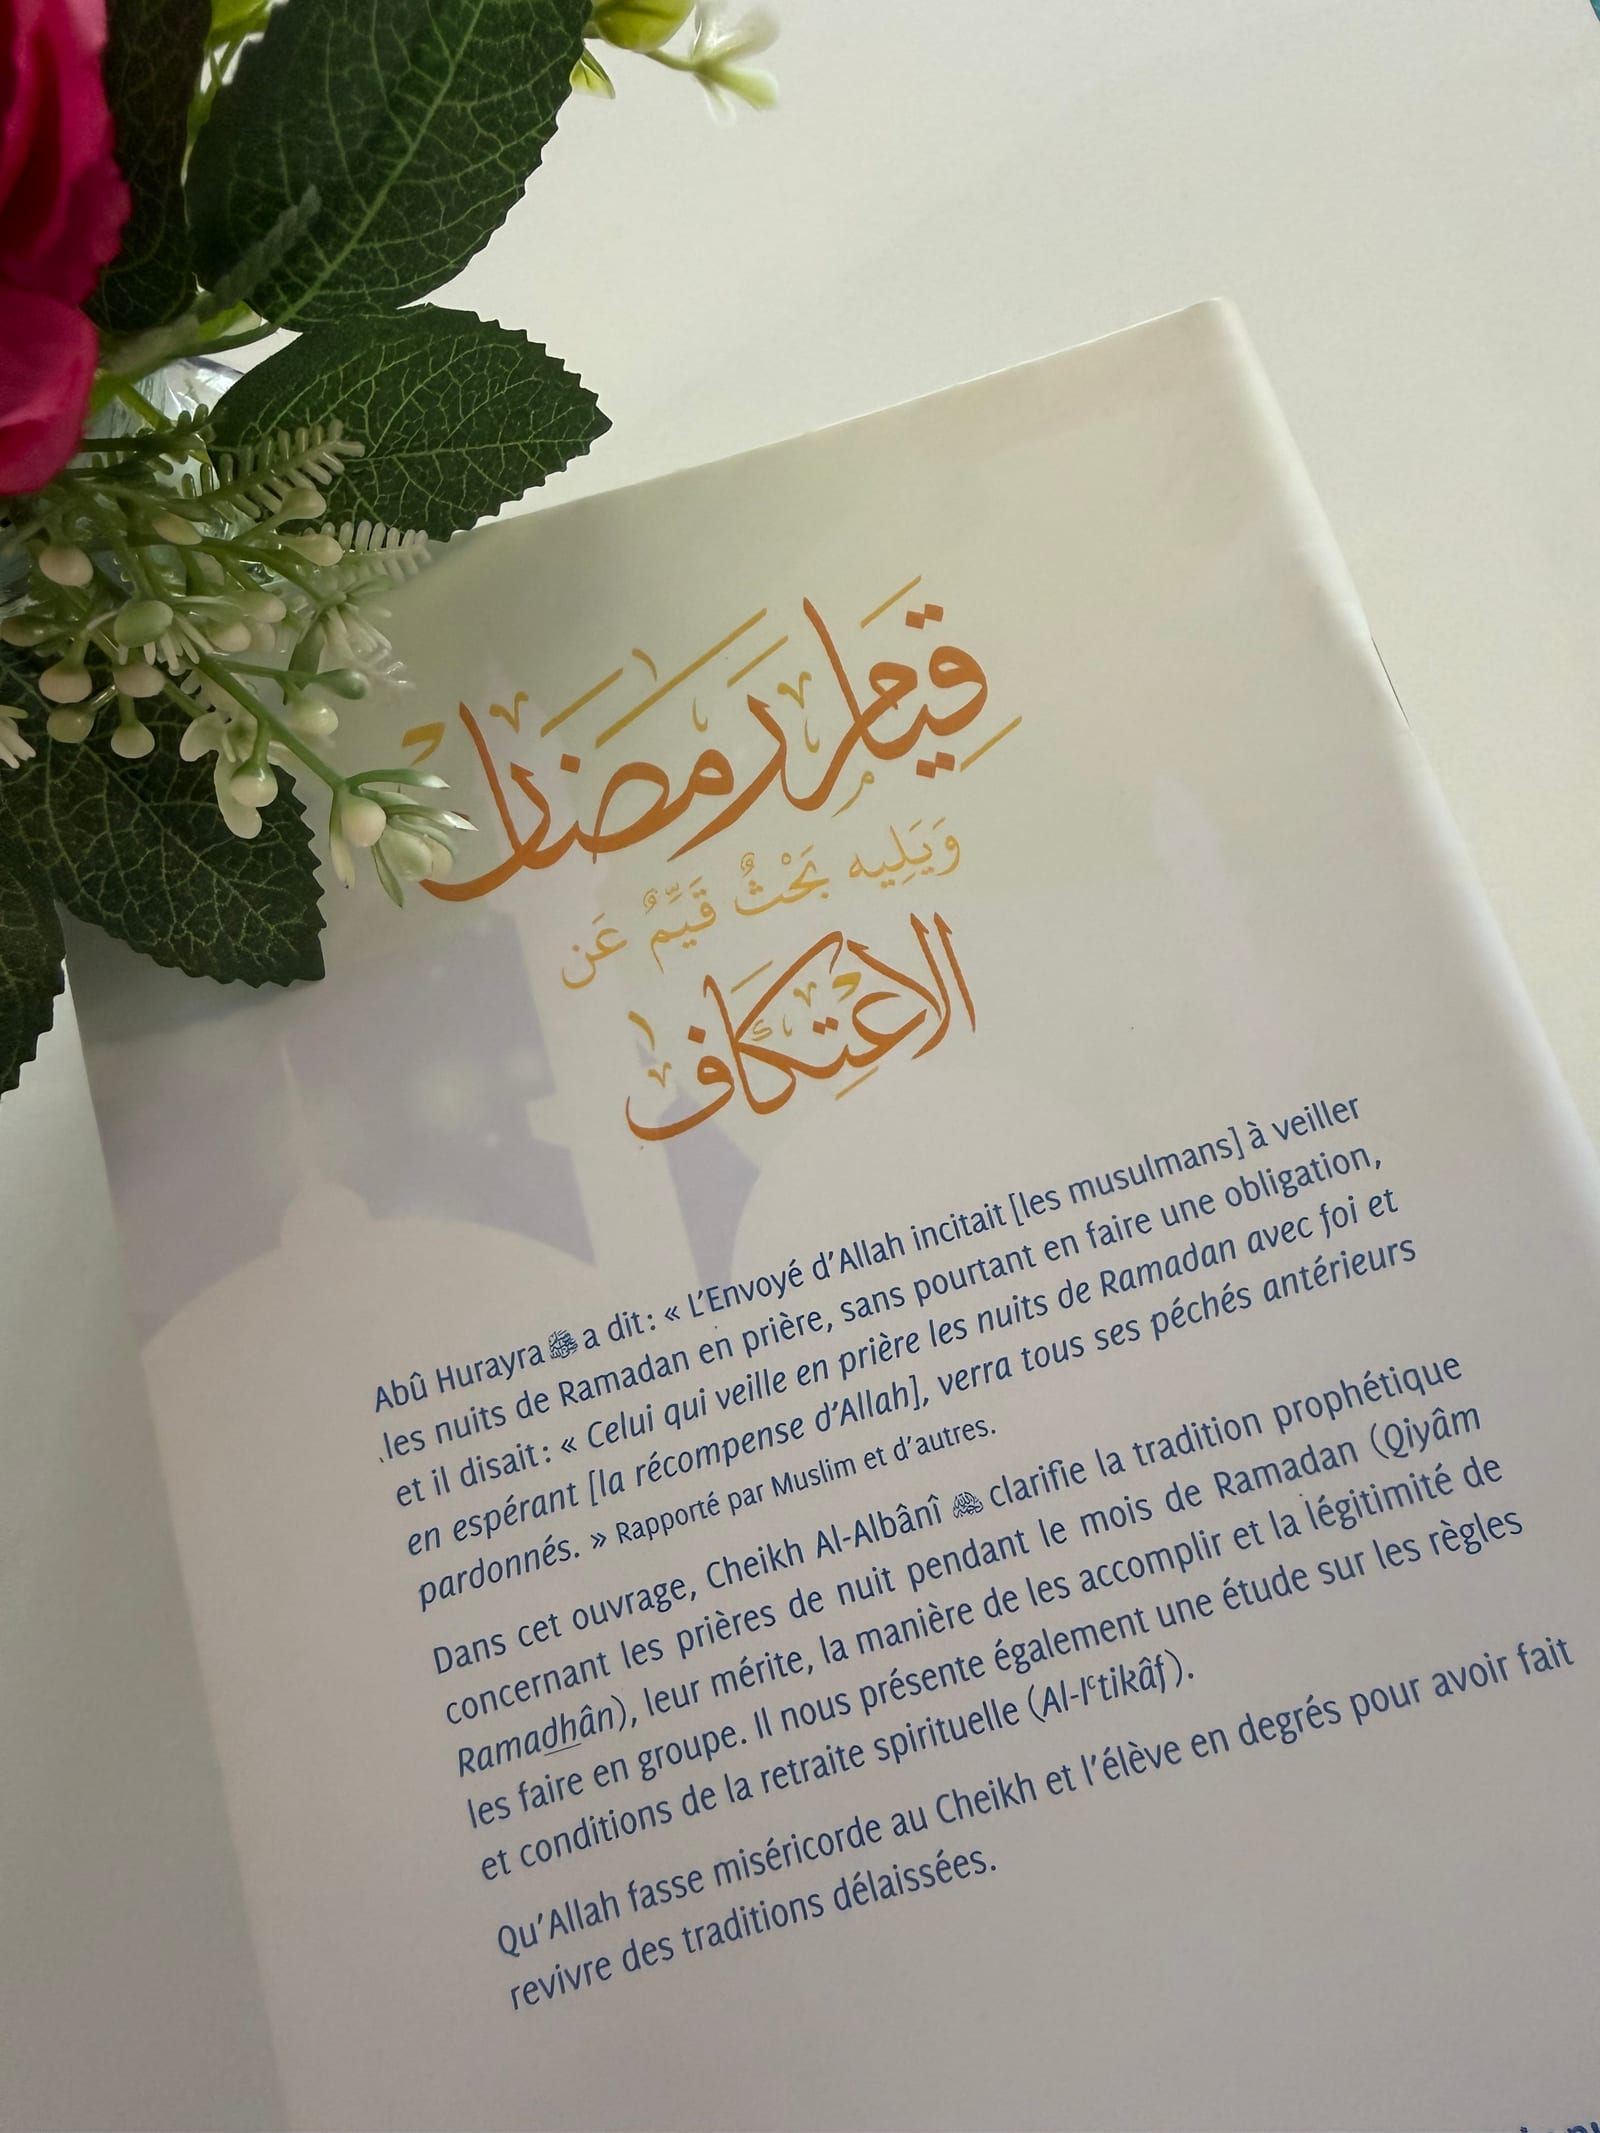 قيام رمضان
وَيَلِيه بَحْثٌ قَيِّمٌ عَن
الاعتكاف
Abû Hurayra a dit : « L’Envoyé d’Allah incitait [les musulmans] à veiller
les nuits de Ramadan en prière, sans pourtant en faire une obligation,
et il disait : « Celui qui veille en prière les nuits de Ramadan avec foi et
en espérant [la récompense d’Allah], verra tous ses péchés antérieurs
pardonnés. » Rapporté par Muslim et d’autres.
Dans cet ouvrage, Cheikh Al-Albânî clarifie la tradition prophétique
concernant les prières de nuit pendant le mois de Ramadan (Qiyâm
Ramadhân), leur mérite, la manière de les accomplir et la légitimité de
les faire en groupe. Il nous présente également une étude sur les règles
et conditions de la retraite spirituelle (Al-Iᶜtikâf).
Qu’Allah fasse miséricorde au Cheikh et l’élève en degrés pour avoir fait
revivre des traditions délaissées.